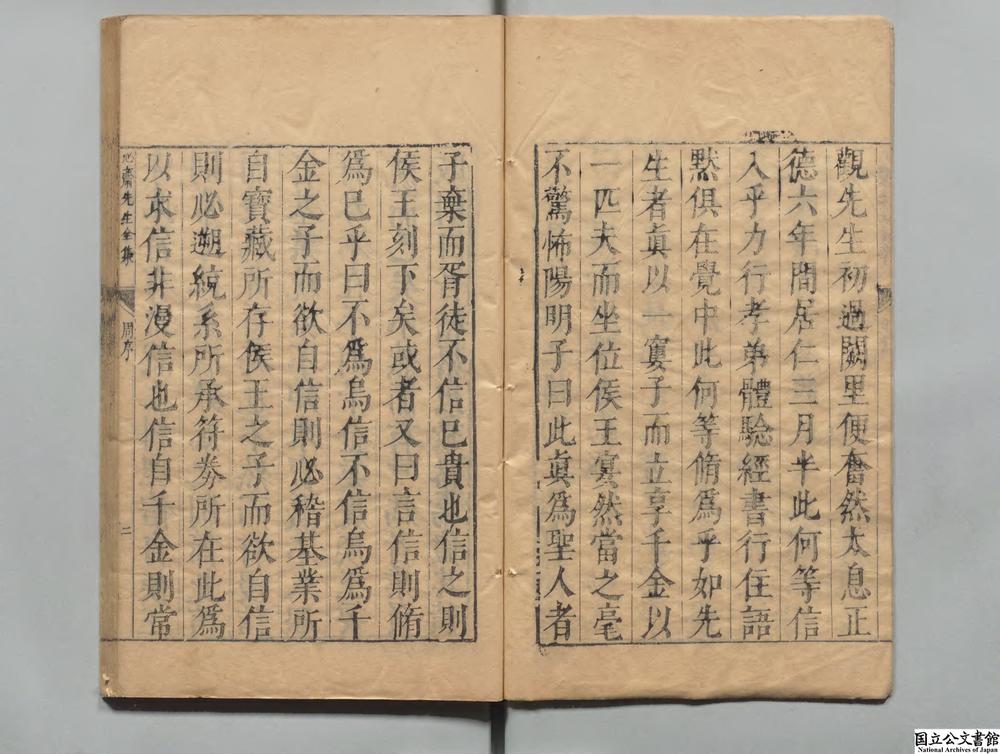 觀先生初過闕里便奮然太息正
德六年間居仁三月半此何等信
入乎力行孝弟體驗經書行住語
默俱在覺中此何等脩爲乎如先
生者眞以一窶子而立享千金以
一匹夫而坐位侯王寔然當之毫
不驚怖陽明子曰此眞爲聖人者
子棄而胥徒不信已貴也信之則
侯王刻下矣或者又曰言信則脩
爲已乎曰不爲烏信不信烏爲千
金之子而欲自信則必稽基業所
自寶藏所存侯王之子而欲自信
則必遡統系所承符券所在此爲
以求信非漫信也信自千金則常
心齋先生全集
周序
二
国立公文書館
National Archives of Japan